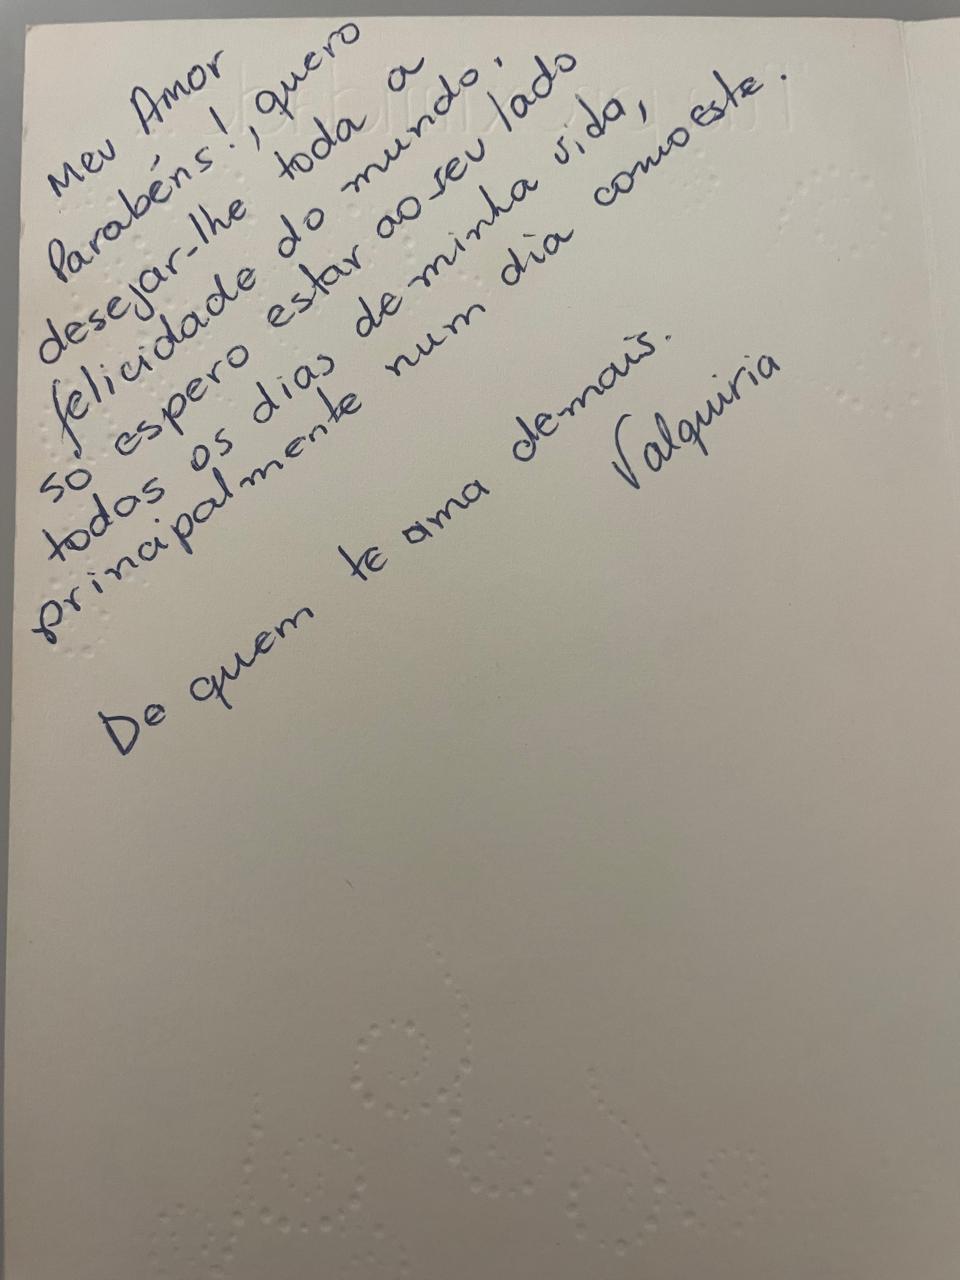 Meu Amor
Parabéns!, quero
desejar-lhe toda a
felicidade do mundo,
só espero estar ao seu lado
todas os dias de minha vida,
principalmente num dia como este.
De quem te ama demais.
Valquiria